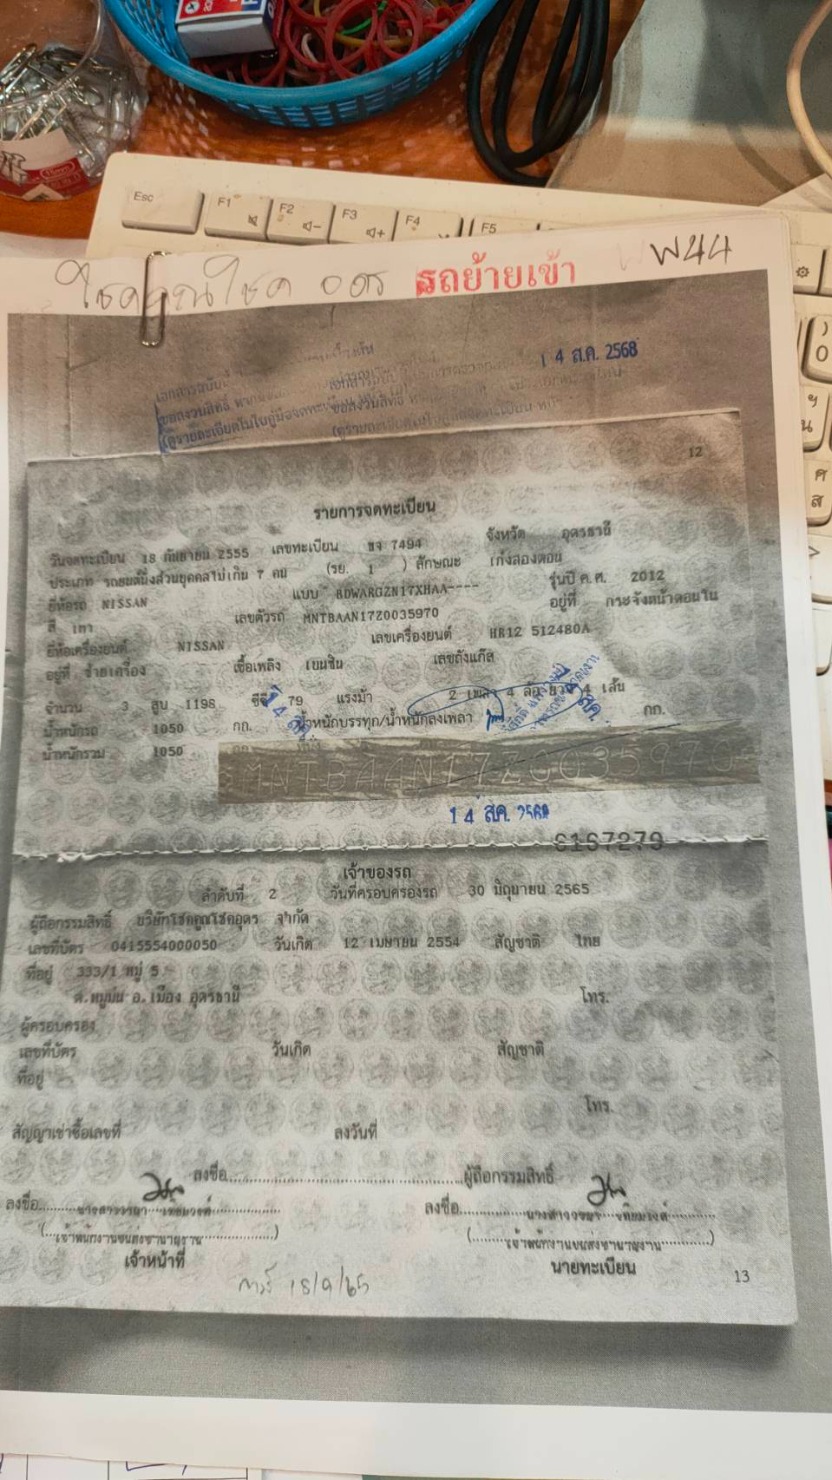 Esc F1 F2 F3 F4 F5
โชคคูณโชค อุดร รถย้ายเข้า W44
14 ส.ค. 2568
12
รายการจดทะเบียน
วันจดทะเบียน 18 กันยายน 2555 เลขทะเบียน ขจ 7494 จังหวัด อุดรธานี
ประเภท รถยนต์นั่งส่วนบุคคลไม่เกิน 7 คน (รย. 1 ) ลักษณะ เก๋งสองตอน
ยี่ห้อรถ NISSAN แบบ BDWARGZN17XHAA---- รุ่นปี ค.ศ. 2012
สี เทา เลขตัวรถ MNTBAAN17Z0035970 อยู่ที่ กระจังหน้าตอนใน
ยี่ห้อเครื่องยนต์ NISSAN เลขเครื่องยนต์ HR12 512480A
อยู่ที่ ซ้ายเครื่อง เชื้อเพลิง เบนซิน เลขถังแก๊ส
จำนวน 3 สูบ 1198 ซีซี 79 แรงม้า 2 เพลา 4 ล้อ ยาง 4 เส้น
น้ำหนักรถ 1050 กก. น้ำหนักบรรทุก/น้ำหนักลงเพลา กก.
น้ำหนักรวม 1050 กก.
MNTBAAN17Z0035970
14 ส.ค. 2568
6167279
เจ้าของรถ
ลำดับที่ 2 วันที่ครอบครองรถ 30 มิถุนายน 2565
ผู้ถือกรรมสิทธิ์ บริษัทโชคคูณโชคอุดร จำกัด
เลขที่บัตร 0415554000050 วันเกิด 12 เมษายน 2554 สัญชาติ ไทย
ที่อยู่ 333/1 หมู่ 5
ต.หมูม่น อ.เมือง อุดรธานี โทร.
ผู้ครอบครอง
เลขที่บัตร วันเกิด สัญชาติ
ที่อยู่
โทร.
สัญญาเช่าซื้อเลขที่ ลงวันที่
ลงชื่อ ผู้ถือกรรมสิทธิ์
ลงชื่อ ลงชื่อ
(เจ้าพนักงานขนส่งชำนาญงาน) (เจ้าพนักงานขนส่งชำนาญงาน)
เจ้าหน้าที่ นายทะเบียน
13